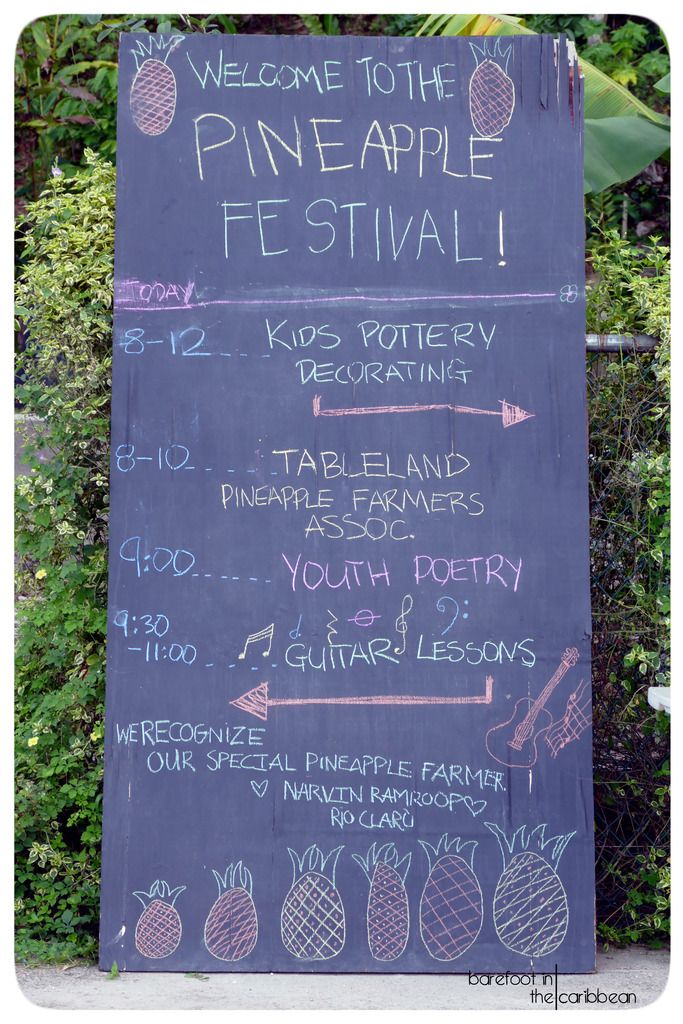 WELCOME TO THE
PINEAPPLE
FESTIVAL!
TODAY
8-12 ---- KIDS POTTERY
DECORATING
8-10 ----- TABLELAND
PINEAPPLE FARMERS
ASSOC.
9:00 ------ YOUTH POETRY
9:30
-11:00 ---- GUITAR LESSONS
WE RECOGNIZE
OUR SPECIAL PINEAPPLE FARMER.
♡ NARVIN RAMROOP ♡
RIO CLARO
barefoot in
the caribbean